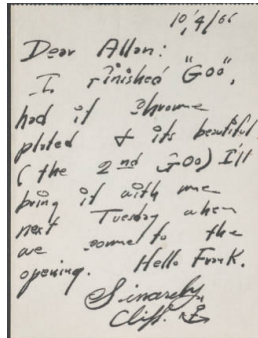 10/4/66
Dear Allan:
I finished "Goo",
had it chrome
plated & its beautiful
(the 2nd Goo) I'll
bring it with me
next Tuesday when
we come to the
opening. Hello Frank.
Sincerely,
Cliff.